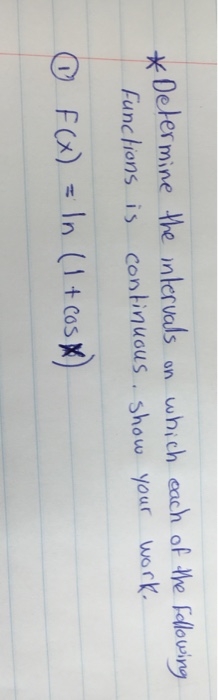 * Determine the intervals on which each of the following
functions is continuous. show your work.
① F(x) = ln (1 + cos x)